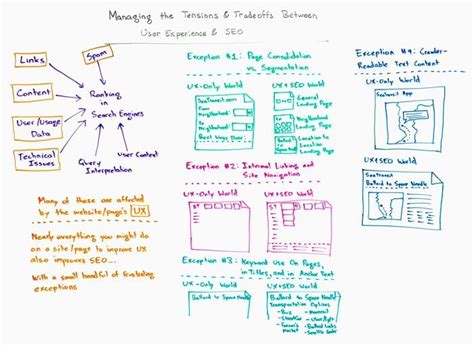 Managing the Tensions & Tradeoffs Between
User Experience & SEO
Links
Spam
Content
User/Usage
Data
Technical
Issues
Ranking
in
Search Engines
Query
Interpretation
User Context
Many of these are affected
by the website/page's UX
Nearly everything you might do
on a site/page to improve UX
also improves SEO...
With a small handful of frustrating
exceptions
Exception #1: Page Consolidation
vs. Segmentation
UX-Only World
UX+SEO World
General
Landing Page
Neighborhood
Landing Page
Location to
Location
Landing Page
Exception #2: Internal Linking and
Site Navigation
UX-Only World
UX+SEO World
ST
ST
Exception #3: Keyword Use On Pages,
in Titles, and in Anchor Text
UX-Only World
UX+SEO World
Ballard to Space Needle
Ballard to Space Needle
Transportation Options
- Bus
- Streetcar
Exception #4: Crawler-
Readable Text Content
UX-Only World
Seatransit App
UX+SEO World
Seatransit
Ballard to Space Needle